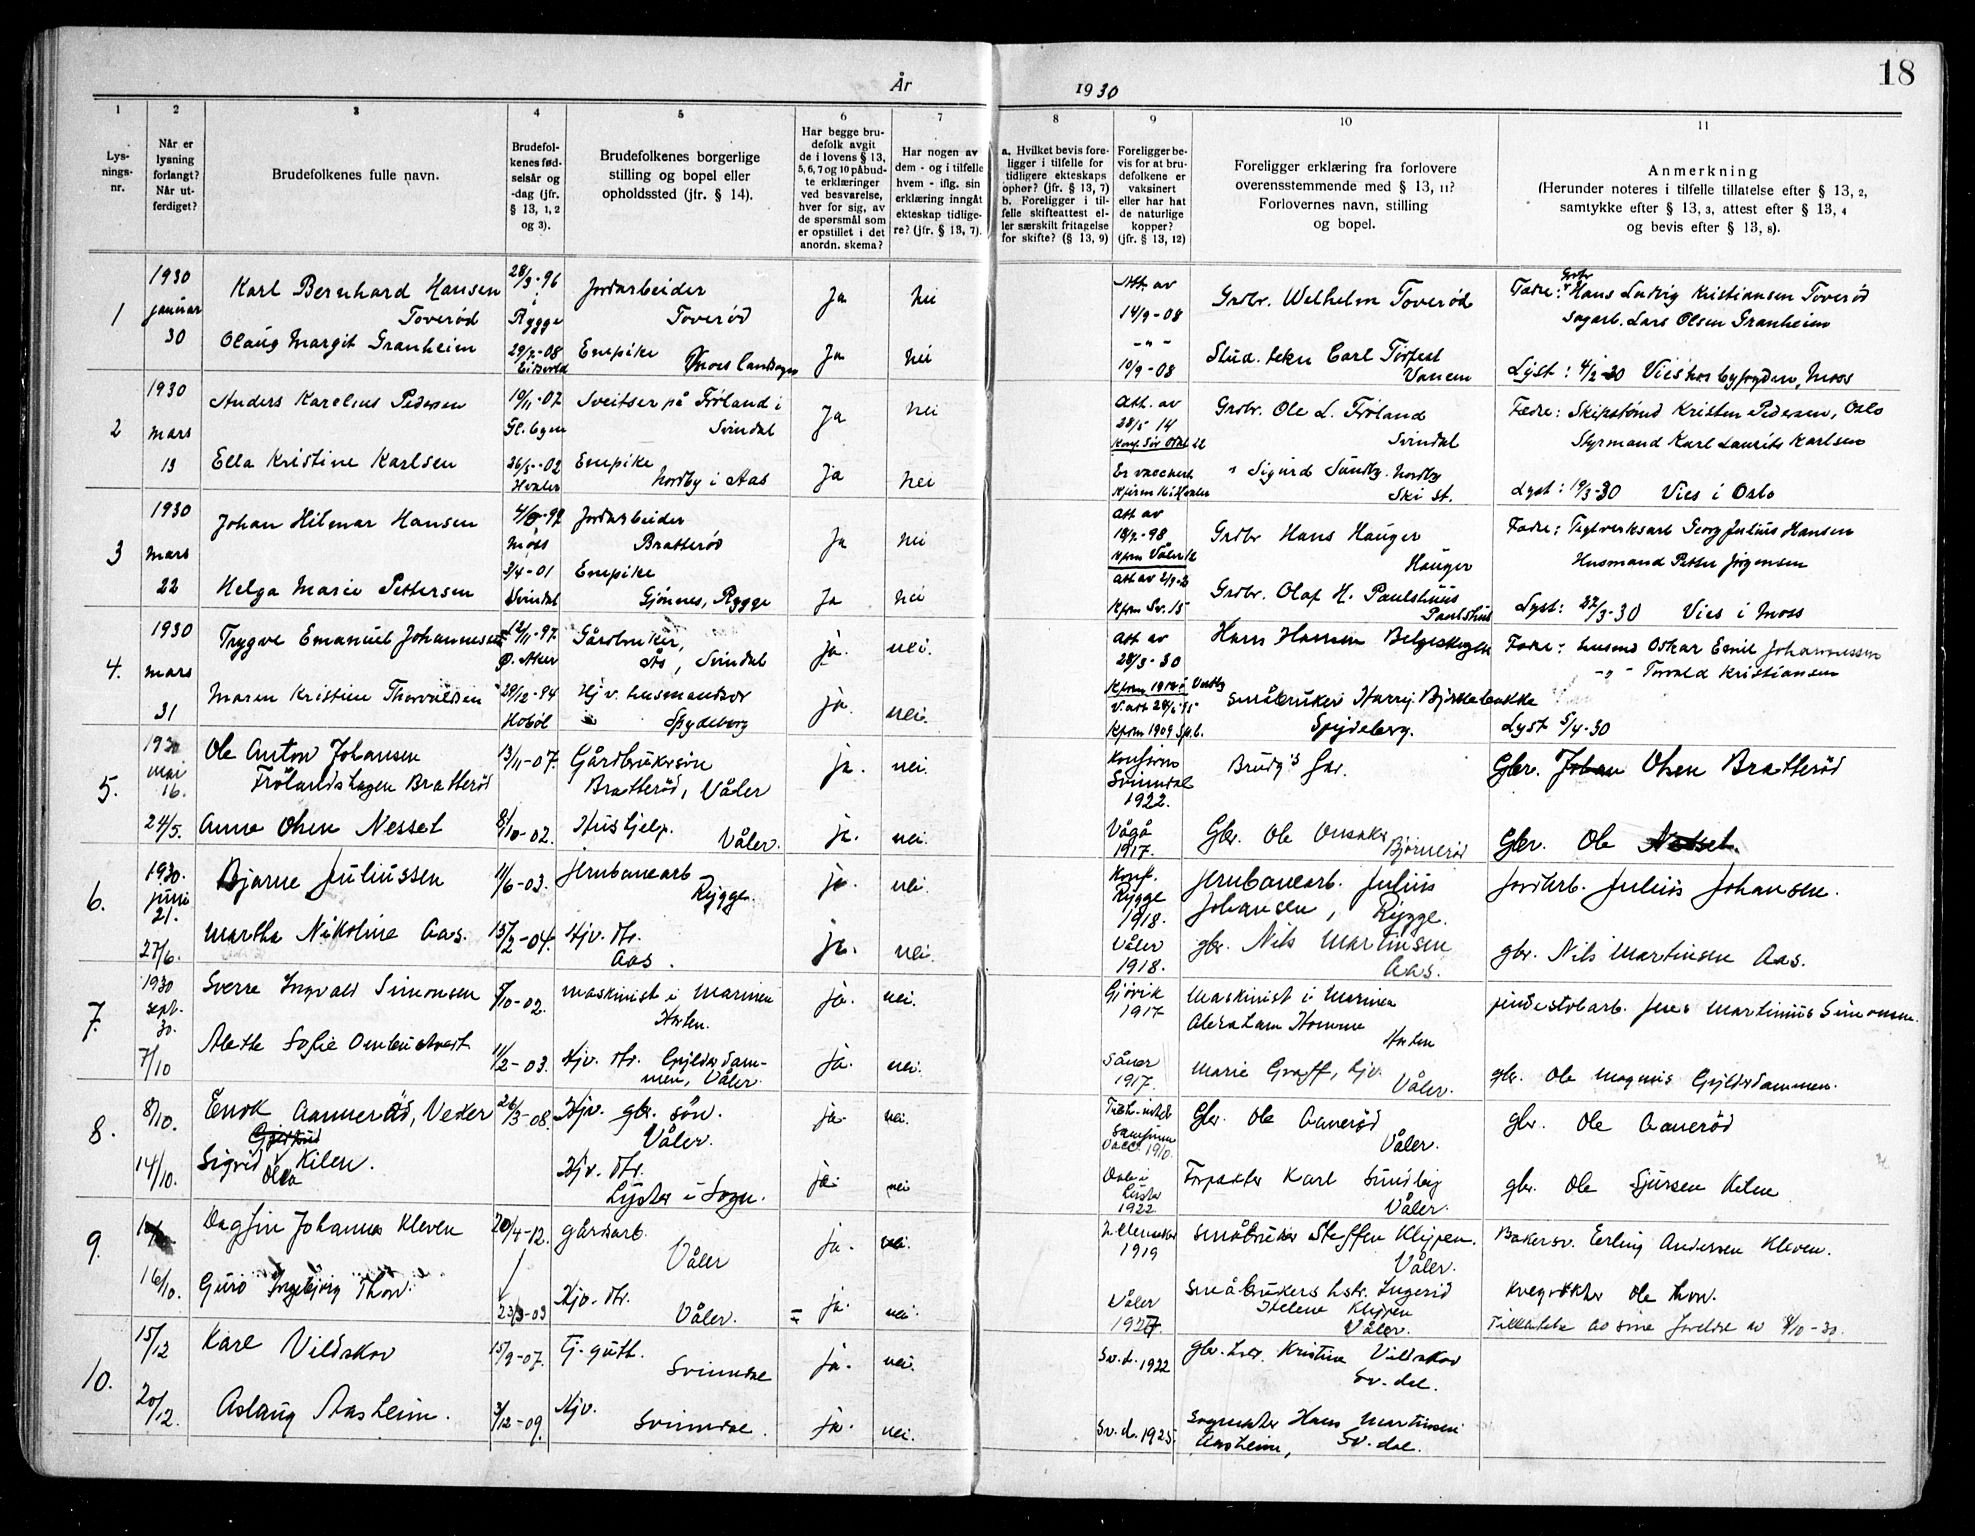 18
År 1930
1 2 3 4 5 6 7 8 9 10 11
Lys-
nings-
nr.
Når er
lysning
forlangt?
Når ut-
ferdiget?
Brudefolkenes fulle navn.
Brudefol-
kenes fød-
selsår og
-dag (jfr.
§ 13, 1, 2
og 3).
Brudefolkenes borgerlige
stilling og bopel eller
opholdssted (jfr. § 14).
Har begge bru-
defolk avgit
de i lovens § 13,
5, 6, 7 og 10 påbud-
te erklæringer
ved besvarelse,
hver for sig, av
de spørsmål som
er opstillet i det
anordn. skema?
Har nogen av
dem - og i tilfelle
hvem - iflg. sin
erklæring inngåt
ekteskap tidlige-
re? (jfr. § 13, 7).
a. Hvilket bevis fore-
ligger i tilfelle for
tidligere ekteskaps
ophør? (jfr. § 13, 7)
b. Foreligger i til-
felle skifteattest el-
ler særskilt fritagelse
for skifte? (§ 13, 9)
Foreligger be-
vis for at bru-
defolkene er
vaksinert
eller har hat
de naturlige
kopper?
(jfr. § 13, 12)
Foreligger erklæring fra forlovere
overensstemmende med § 13, 11?
Forlovernes navn, stilling
og bopel.
Anmerkning
(Herunder noteres i tilfelle tillatelse efter § 13, 2,
samtykke efter § 13, 3, attest efter § 13, 4
og bevis efter § 13, 8).
1
1930
januar
30
Karl Bernhard Hansen
Toverød
28/3-96
i
Rygge
Jordarbeider
Toverød
Ja
Nei
Att. av
14/9-08
Grdbr. Welhelm Toverød
Fædre: Grdbr Hans Ludvig Kristiansen Toverød
Sagarb. Lars Olsen Granheim
Olaug Margit Granheim
Eidsvold
Enepike
Moss landsogn
Ja
Nei
- " -
10/9-08
Stud. tekn Carl Torfest
Vansem
Lyst: 4/2-30 Vies hos byfogden, Moss
2
1930
mars
13
Anders Karelius Pedersen
19/11-07
Gl. byen
Sveitser på Frøland i
Svindal
Ja
Nei
Att. av
28/5 14
Grdbr. Ole L. Frøland
Svindal
Fædre: Skipstømd Kristen Pedersen, Oslo
Styrmand Karl Laurits Karlsen
Ella Kristine Karlsen
Hvaler
Enepike
Nordby i Aas
Ja
Nei
Er vaccinert
" Sigurd Sundby. Nordby
Ski st.
Lyst: 19/3-30 Vies i Oslo
3
1930
mars
22
Johan Hilmar Hansen
Moss
Jordarbeider
Bratterød
Ja
Nei
Att av
18/7-98
Grdbr Hans Hauger
Hauger
Fædre: Teglverksarb Georg Julius Hansen
Husmand Petter Jørgensen
Helga Marie Pettersen
3/4-01
Svindal
Enepike
Gjønnes, Rygge
Ja
Nei
Kfrm Sv. 15
Grdbr. Olaf H. Paulshus
Paulshus
Lyst: 22/3-30 Vies i Moss
4.
1930
mars
31
Trygve Emanuel Johannesen
12/11-97.
Ø. Aker
Gårdbruker,
Ås, Svindal
ja.
nei.
Att av
28/3-30
Hans Hansen Belgeskogen
Fædre: husmd Oskar Emil Johannessen
- " - Torvald Kristiansen
Maren Kristine Thorvaldsen
29/12-94
Hobøl
Hj v. husmandsdr
Spydeberg
ja.
nei.
Kfrm 1909 Sp.b.
Småbruker Harry Bjørkebakke
Spydeberg.
Lyst 5/4-30
5.
1930
mai
16.
Ole Anton Johansen
Frølandshagen Bratterød
13/11-07.
Gårdbrukersøn
Bratterød, Våler
ja.
nei.
Konfirm
Svinndal
1922.
Brudg's far.
Gbr. Johan Olsen Bratterød
24/5.
Anna Olsen Nesset
8/10-02.
Hushjelp.
Våler.
ja.
nei.
Vågå
1917.
Gbr. Ole
Bjørnerød
Gbr. Ole Nesset.
6.
1930.
juni
21.
Bjarne Juliussen
11/6-03.
Jernbanearb
Rygge.
ja.
nei.
Konf.
Rygge
1918.
Jernbanearb. Julius
Johansen, Rygge.
Jordarb. Julius Johansen.
27/6.
Martha Nikoline Aas.
15/2-04.
Hjv. dtr.
Aas.
ja.
nei.
Våler
1918.
gbr. Nils Martinsen
Aas.
gbr. Nils Martinsen Aas.
7.
1930
sept.
30.
Sverre Ingvald Simonsen
5/10-02.
Maskinist i Marinen
Horten.
ja.
nei.
Gjøvik
1917
Maskinist i Marinen
Abraham Homme
Horten
Jens Martinius Simonsen.
7/10
Alette Sofie Ombustvedt
11/2-03.
Hjv. dtr. Gylderdam-
men, Våler.
ja.
nei.
Såner
1917.
Marie Graff, hjv.
Våler.
gbr. Ole Magnus Gylderdammen.
8.
8/10.
Enok Aannerød, Veder
26/3-08.
Hjv. gbr. søn.
Våler.
ja.
nei.
vacc. 1910.
Gbr. Ole Aanerød
Våler.
gbr. Ole Aanerød
14/10.
Sigrid Olea Kilen.
Hjv. dtr.
Lyster i Sogn.
ja.
nei
Dale i
Luster
1922
Forpakter Karl Sundby
Våler.
gbr. Ole Sjursen Kilen
9.
Dagfin Johannes Kleven
20/4-12.
gårdsarb.
Våler
ja.
nei.
1919
Småbruker Steffen Klypen.
Våler.
Bakersv. Erling Andersen Kleven.
16/10.
Guro Ingebjørg Thon.
23/3-03
Hjv. dtr.
Våler.
ja.
nei.
Våler
1927
Småbrukers hstr. Ingerid
Helene Klypen
Våler.
Ole Thon.
Tillatelse av sine foreldre av 9/10-30.
10.
15/12
Karl Vildskov
15/9-07.
Tj. gutt.
Svinndal
ja.
nei.
Sv.d. 1922
gbr. Kristine Vildskov
Sv.dal.
20/12.
Aslaug Aasheim.
3/12-09.
Hjv.
Svinndal.
ja.
nei.
Sv.d. 1925.
Hans Martinsen
Aasheim, Sv.dal.